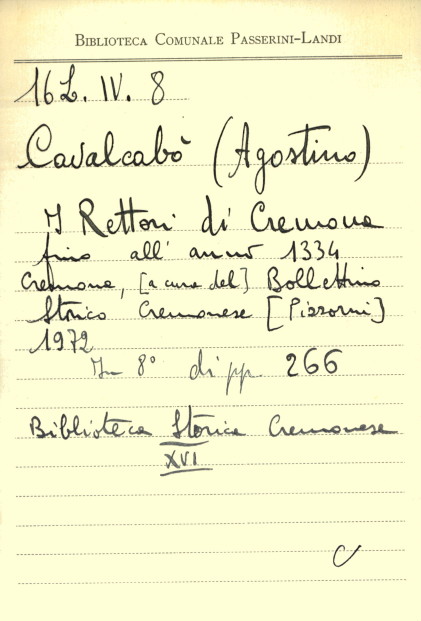 BIBLIOTECA COMUNALE PASSERINI-LANDI
16 L. IV. 8
Cavalcabò (Agostino)
I Rettori di Cremona
fino all' anno 1334
Cremona, [a cura del] Bollettino
Storico Cremonese [Pizzorni]
1972
In 8° di pp. 266
Biblioteca Storica Cremonese
XVI
C